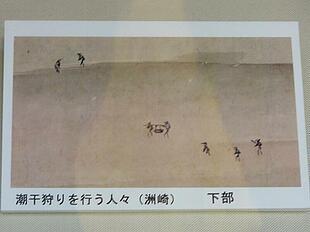 潮干狩りを行う人々（洲崎）　　下部